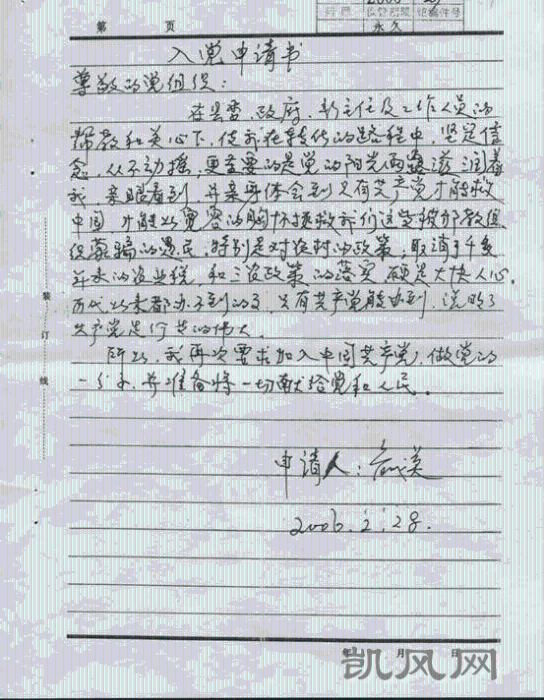 第 页
永久
入党申请书
尊敬的党组织：
在县委、政府、彭主任及工作人员的
帮教和关心下，使我在转化的路程中，坚定信
念，从不动摇，更重要的是党的阳光雨露滋润着
我，亲眼看到，并亲身体会到只有共产党才能救
中国，才能以宽容的胸怀拯救我们这些被邪教组
织蒙骗的愚民，特别是对农村的政策，取消了千多
年来的农业税，和三农政策的落实，硬是大快人心，
历代以来都办不到的事，只有共产党能办到，说明了
共产党是何其的伟大。
所以，我再次要求加入中国共产党，做党的
一分子，并准备将一切献给党和人民。
申请人：
2006.2.28.
装订线
年 月 日
凯风网